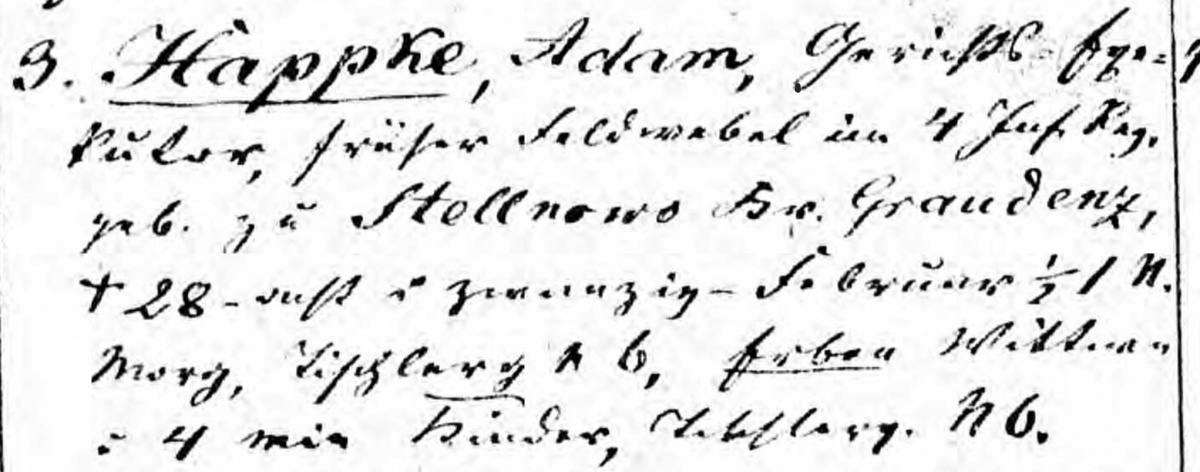 3. Happke, Adam, Gerichts-Exe=
kutor, früher Feldwebel im 4 Inf. Reg.
geb. zu Stellnowo Kr. Graudenz,
† 28 - acht u zwanzig - Februar ½ 1 N.
Morg, Tischlerg N 6, Erben Wittwe
u 4 min Kinder, Tischlerg. N 6.